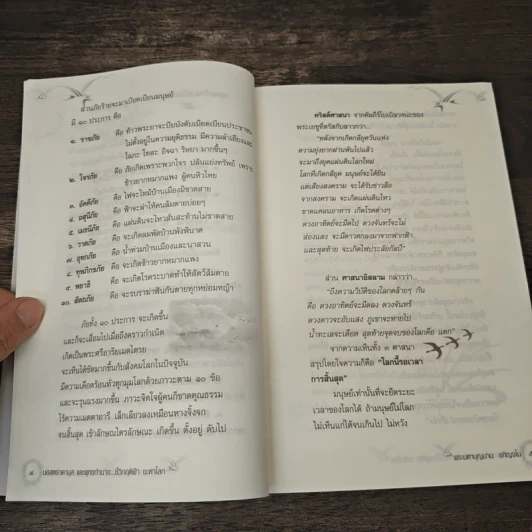 ส่วนภัยร้ายจะมาเบียดเบียนมนุษย์
มี ๑๐ ประการ คือ
๑. ราชภัย คือ ท้าวพระยาจะบีบบังคับเบียดเบียนประชาชน
ไม่ตั้งอยู่ในความยุติธรรม มีความลำเอียงและ
โลภะ โทสะ อิจฉา ริษยา มากขึ้นๆ
๒. โจรภัย คือ ภัยเกิดเพราะพวกโจร ปล้นแย่งทรัพย์ เพราะ
ข้าวยากหมากแพง ผู้คนหิวโหย
๓. อัคคีภัย คือ ไฟจะไหม้บ้านเมืองมิขาดสาย
๔. อสุนีภัย คือ ฟ้าจะผ่าให้คนล้มตายบ่อยๆ
๕. เมทนีภัย คือ แผ่นดินจะไหวสั่นสะท้านไม่ขาดสาย
๖. วาตภัย คือ จะเกิดลมพัดบ้านพังพินาศ
๗. อุทกภัย คือ น้ำท่วมบ้านเมืองและนาสวน
๘. ทุพภิกขภัย คือ จะเกิดข้าวยากหมากแพง
๙. พยาธิ คือ จะเกิดโรคระบาดทำให้สัตว์ล้มตาย
๑๐. สัตถภัย คือ จะรบราฆ่าฟันกันตายทุกหย่อมหญ้า
ภัยทั้ง ๑๐ ประการ จะเกิดขึ้น
และก็จะเลื่อมไปเมื่อถึงคราวกำเนิด
เกิดเป็นพระศรีอาริยเมตไตรย
จะเห็นได้ชัดมากขึ้นกับสังคมโลกในปัจจุบัน
มีความเดือดร้อนทั่วทุกมุมโลกด้วยภาวะตาม ๑๐ ข้อ
และจะรุนแรงมากขึ้น ภาวะจิตใจผู้คนก็ขาดคุณธรรม
ไร้ความเมตตาอารี เล็กเลียวลงเหมือนหางจิ้งจก
จนสิ้นสุด เข้าลักษณะไตรลักษณะ เกิดขึ้น ตั้งอยู่ ดับไป
คริสต์ศาสนา จากคัมภีร์ไบเบิล
พระเยซูตรัสกับสาวกว่า...
"หลังจากเกิดกลียุควันแห่ง
ความยุ่งยากผ่านพ้นไปแล้ว
จะมาถึงยุคแผ่นดินโลกใหม่
โลกที่เกิดกลียุค มนุษย์จะได้ยิน
แต่เสียงสงคราม จะได้รับข่าวลือ
จากสงคราม จะเกิดแผ่นดินไหว
ขาดแคลนอาหาร เกิดโรคต่างๆ
ดวงอาทิตย์จะมืดไป ดวงจันทร์จะไม่
ส่องแสง จะมีดาวตกลงมาจากฟากฟ้า
และสุดท้าย จะเกิดไฟประลัยกัลป์"
ส่วน ศาสนาอิสลาม กล่าวว่า..
"ถึงความวิบัติของโลกคล้ายๆ กัน
คือ ดวงอาทิตย์จะมืดลง ดวงจันทร์
ดวงดาวจะอับแสง ภูเขาจะหายไป
น้ำทะเลจะเดือด สุดท้ายจุดจบของโลกคือ แตก"
จากความเห็นทั้ง ๓ ศาสนา
สรุปโดยใจความก็คือ "โลกนี้รอเวลา
การสิ้นสุด"
มนุษย์เท่านั้นที่จะยืดระยะ
เวลาของโลกได้ ถ้ามนุษย์ไม่โลภ
ไม่เห็นแก่ได้จนเกินไป ไม่หวัง